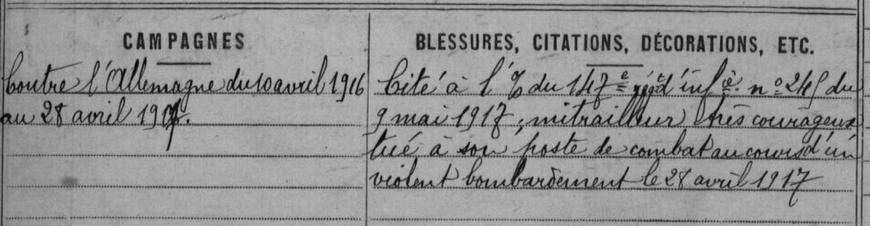 CAMPAGNES
Contre l'Allemagne du 10 avril 1916
au 28 avril 1917.
BLESSURES, CITATIONS, DÉCORATIONS, ETC.
Cité à l'O du 147e régt d'infie no 245 du
9 mai 1917, mitrailleur très courageux
tué à son poste de combat au cours d'un
violent bombardement le 28 avril 1917